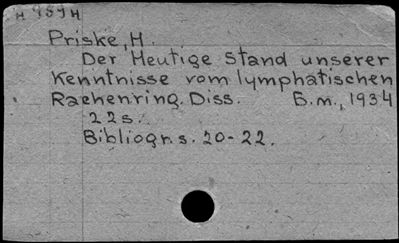 Priske, H.
Der Heutige Stand unserer
Kenntnisse vom lymphatischen
Rachenring. Diss. B.m., 1934
22 s.
Bibliogr. s. 20-22.